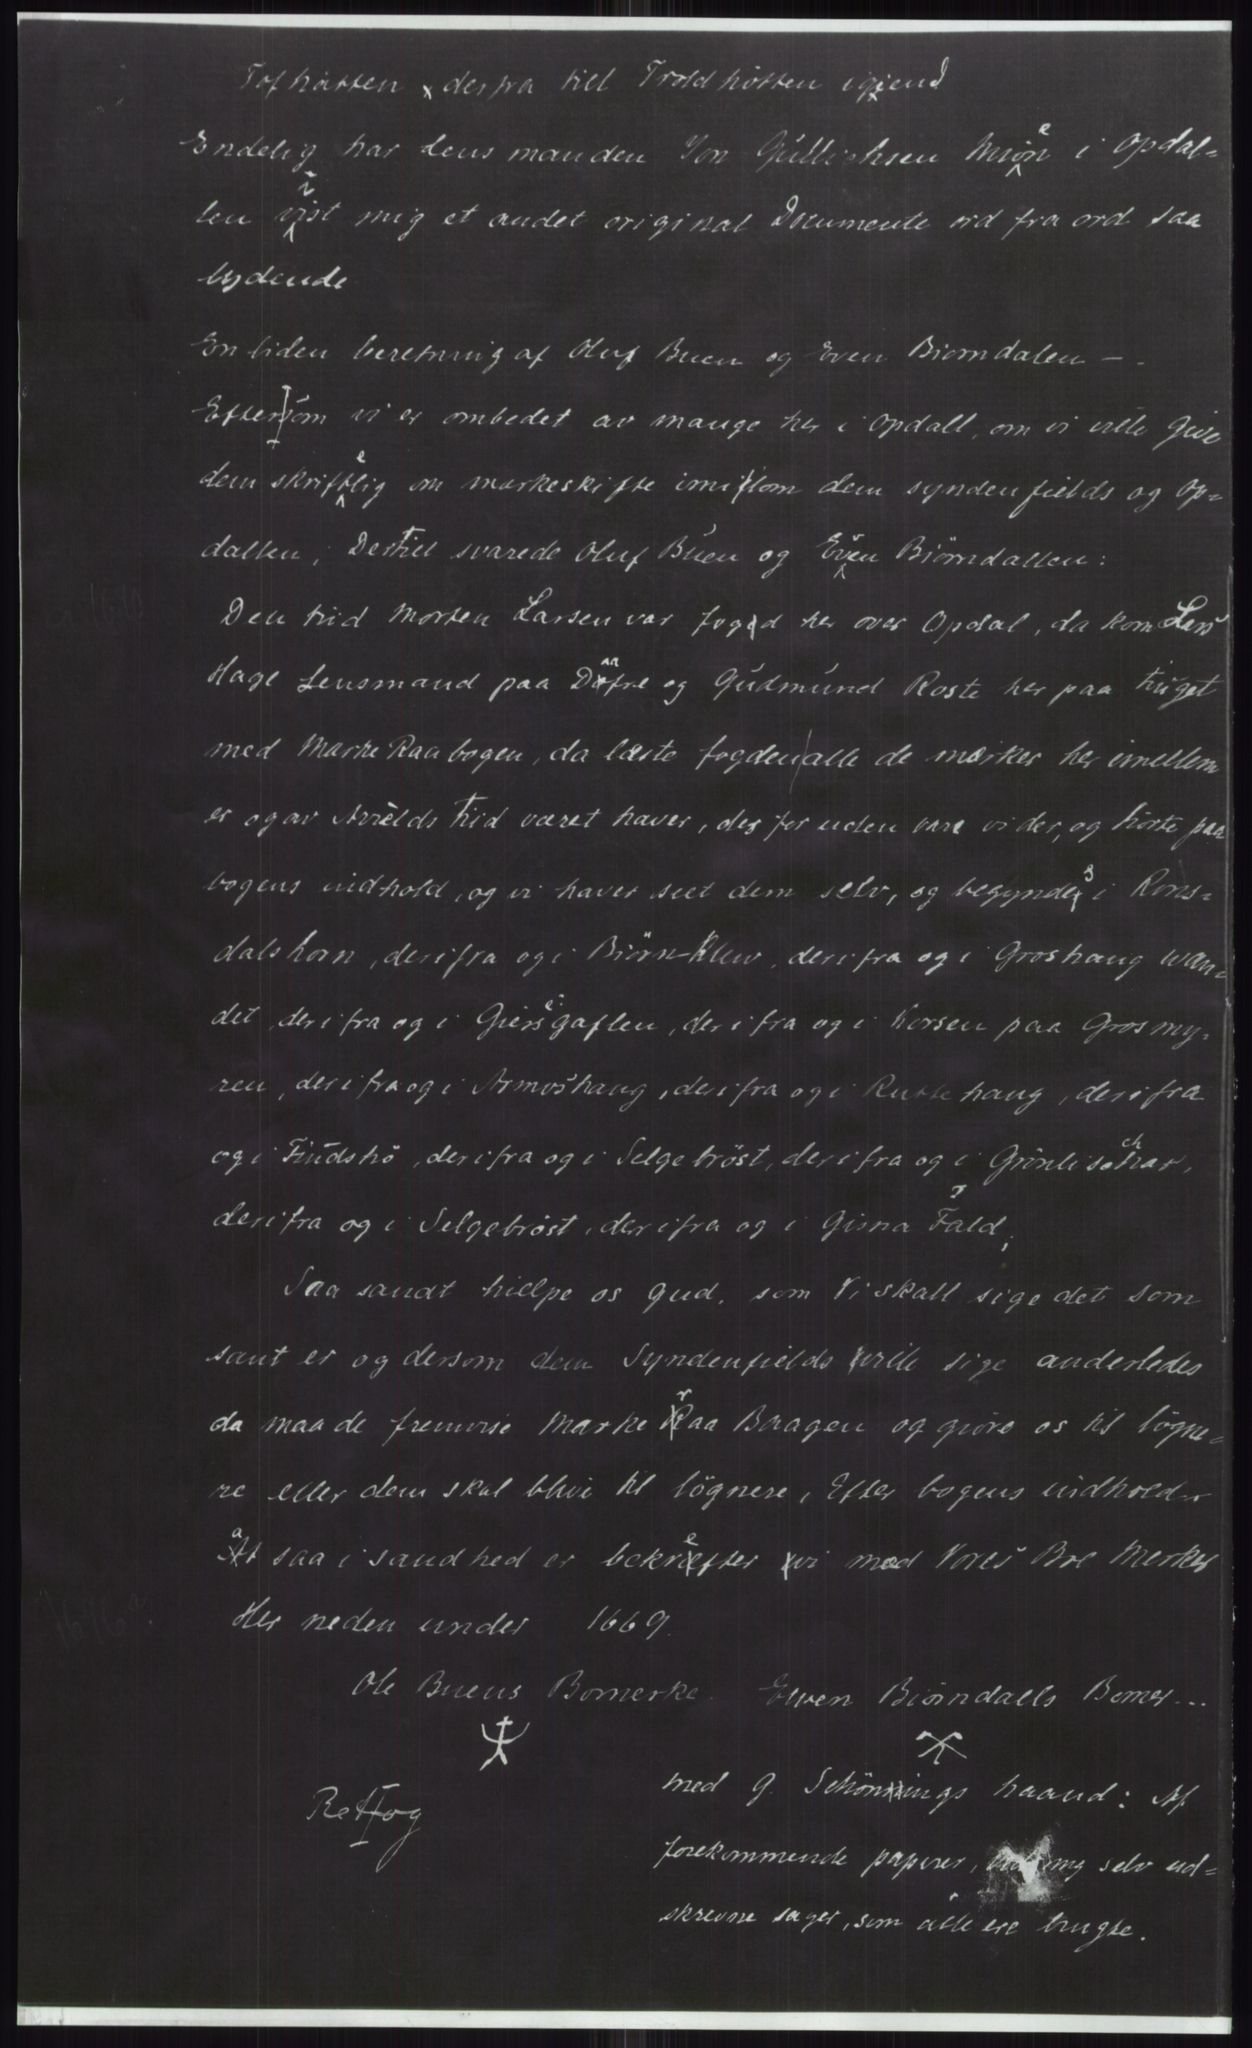 Tofhatten derfra till Troldhötten igiend
Endelig har lensmanden Jon Gullichsen Mione i Opdal-
len vist mig et andet original Documente ord fra ord saa
lydende
En liden beretning af Oluf Buen og Even Biorndalen —
Eftersom vi er ombedet av mange her i Opdall, om vi ville Give
dem skriftelig om markeskifte imillom dem syndenfields og Op-
dallen, Dertil svarede Oluf Buen og Even Biörndallen:
Den tiid Morten Larsen var foged her over Opdal, da kom Lars
Hage Lensmand paa Daafre og Gudmund Roste her paa tinget
med Marke Raa bogen, da læste fogden alle de mærker her imellem
er og av Arrilds tiid været haver, der for uden vare vi der, og hörte paa
bogens indhold, og vi haver seet dem selv, og begyndes i Roms-
dalshorn, derifra og i Biörn-Klew, derifra og i Groshaug wan-
det, derifra og i Giersgaflen, derifra og i Korsen paa Grosmy-
ren, derifra og i Armoshaug, derifra og i Ruttehaug, derifra
og i Findshö, derifra og i Selgebröst, derifra og i Grönlischar,
derifra og i Selgebröst, derifra og i Gisna Fald;
Saa sandt hielpe os gud, som Vi skall sige det som
sant er og dersom dem Syndenfields wille sige anderledes
da maa de fremvise Marke Raa Baagen og giöre os til lögne-
re eller dem skal blive til lögnere, Efter bogens indhold
At saa i sandhed er bekrefter vi med Vores Boe Merker
Her neden under 1669.
Ole Buens Bomerke. Ewen Biörndaels Bomer...
Rettog
med G. Schönnings haand: Af
forekommende papirer, my selv ud-
skrevne sager, som alle ere brugte.